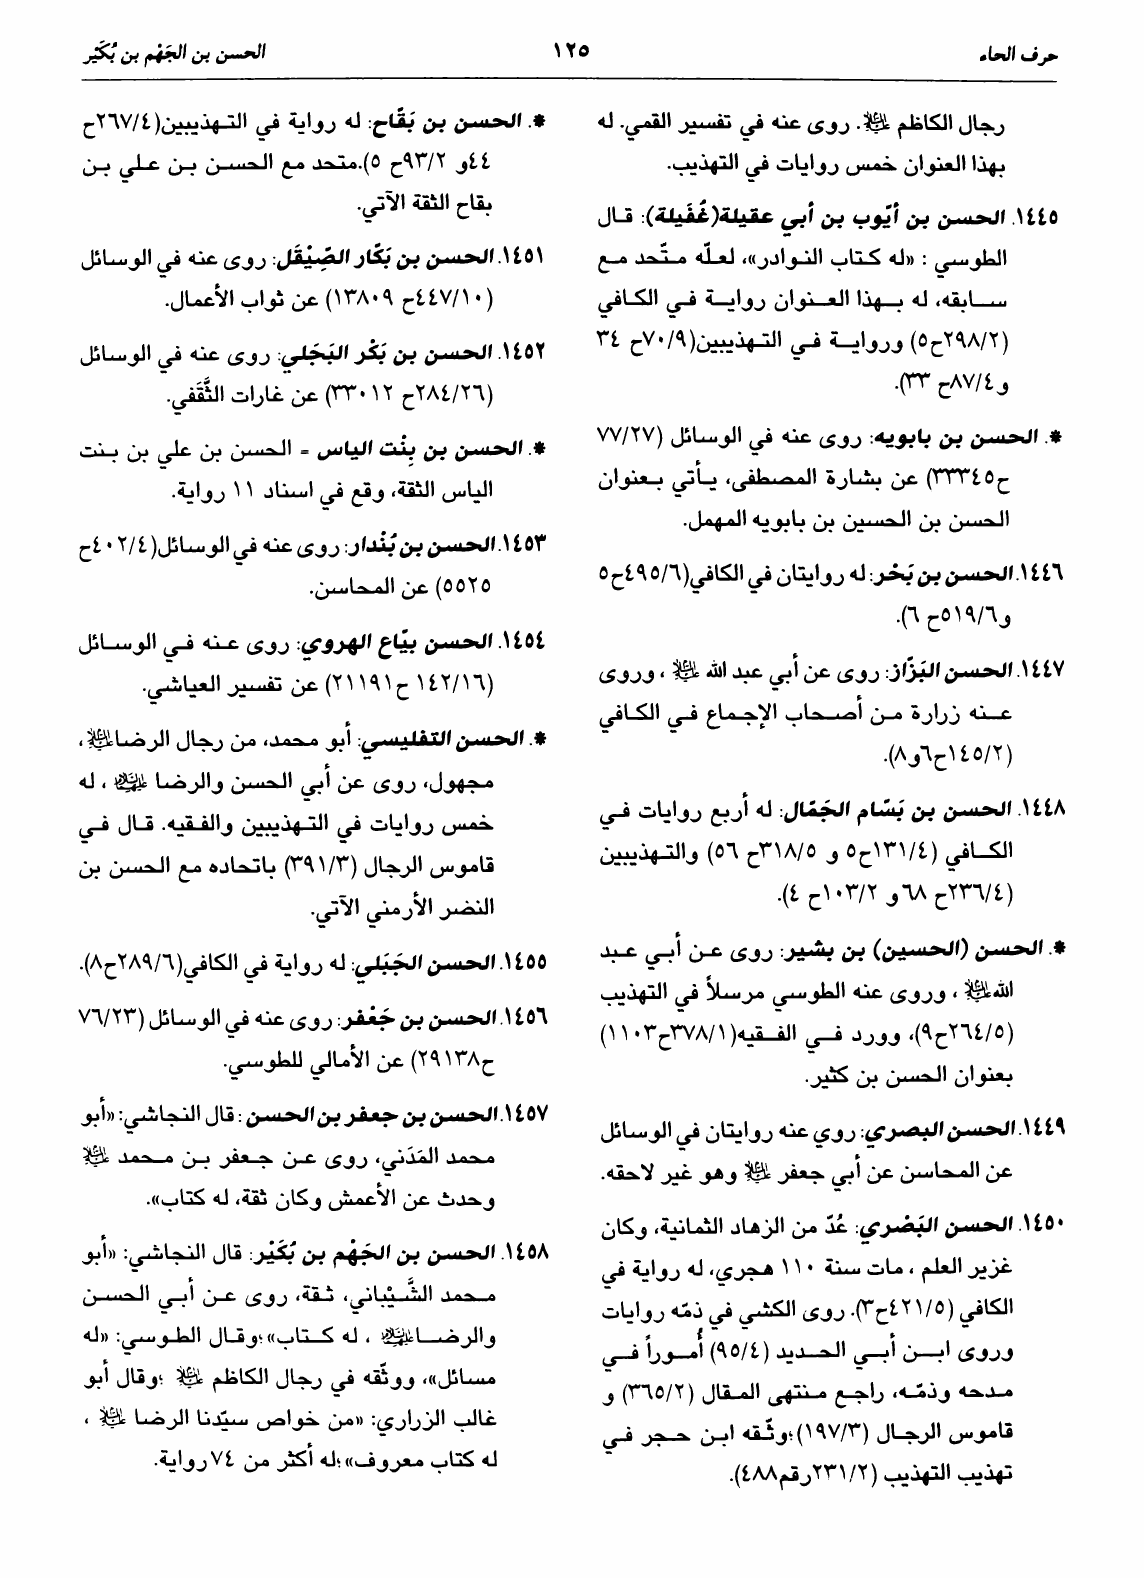 حرف الحاء ١٢٥ الحسن بن الجَهْم بن بُكَيْر
رجال الكاظم ﵇. روى عنه في تفسير القمي. له
بهذا العنوان خمس روايات في التهذيب.
١٤٤٥. الحسن بن أيّوب بن أبي عقيلة(غُفَيلة): قال
الطوسي : «له كتاب النوادر»، لعلّه متّحد مع
سابقه، له بهذا العنوان رواية في الكافي
(٢٩٨/٢ح٥) ورواية في التهذيبين(٧٠/٩ح ٣٤
و٨٧/٤ح ٣٣).
*. الحسن بن بابويه: روى عنه في الوسائل (٧٧/٢٧
ح٣٣٣٤٥) عن بشارة المصطفى، يأتي بعنوان
الحسن بن الحسين بن بابويه المهمل.
١٤٤٦. الحسن بن بَحْر: له روايتان في الكافي(٤٩٥/٦ح٥
و٥١٩/٦ح ٦).
١٤٤٧. الحسن البَزّاز: روى عن أبي عبد الله ﵇ ، وروى
عنه زرارة من أصحاب الإجماع في الكافي
(١٤٥/٢ح٦و٨).
١٤٤٨. الحسن بن بَسّام الجَمّال: له أربع روايات في
الكافي (١٣١/٤ح٥ و ٣١٨/٥ح ٥٦) والتهذيبين
(٢٣٦/٤ح ٦٨و ١٠٣/٢ح ٤).
*. الحسن (الحسين) بن بشير: روى عن أبي عبد
الله﵇ ، وروى عنه الطوسي مرسلاً في التهذيب
(٢٦٤/٥ح٩)، وورد في الفقيه(٣٧٨/١ح١١٠٣)
بعنوان الحسن بن كثير.
١٤٤٩. الحسن البصري: روي عنه روايتان في الوسائل
عن المحاسن عن أبي جعفر ﵇ وهو غير لاحقه.
١٤٥٠. الحسن البَصْري: عُدّ من الزهاد الثمانية، وكان
غزير العلم ، مات سنة ١١٠ هجري، له رواية في
الكافي (٤٢١/٥ح٣). روى الكشي في ذمّه روايات
وروى ابن أبي الحديد (٩٥/٤) أُموراً في
مدحه وذمّه، راجع منتهى المقال (٣٦٥/٢) و
قاموس الرجال (١٩٧/٣)؛وثّقه ابن حجر في
تهذيب التهذيب (٢٣١/٢رقم٤٨٨).
*. الحسن بن بَقّاح: له رواية في التهذيبين(٢٦٧/٤ح
٤٤و ٩٣/٢ح ٥).متحد مع الحسن بن علي بن
بقاح الثقة الآتي.
١٤٥١. الحسن بن بَكّار الصَّيْقَل: روى عنه في الوسائل
(٤٤٧/١٠ح ١٣٨٠٩) عن ثواب الأعمال.
١٤٥٢. الحسن بن بَكْر البَجَلي: روى عنه في الوسائل
(٢٨٤/٢٦ح ٣٣٠١٢) عن غارات الثَّقَفي.
*. الحسن بن بِنْت الياس = الحسن بن علي بن بنت
الياس الثقة، وقع في اسناد ١١ رواية.
١٤٥٣. الحسن بن بُنْدار: روى عنه في الوسائل(٤٠٢/٤ح
٥٥٢٥) عن المحاسن.
١٤٥٤. الحسن بيّاع الهروي: روى عنه في الوسائل
(١٤٢/١٦ ح٢١١٩١) عن تفسير العياشي.
*. الحسن التفليسي: أبو محمد، من رجال الرضا﵇،
مجهول، روى عن أبي الحسن والرضا ﵉ ، له
خمس روايات في التهذيبين والفقيه. قال في
قاموس الرجال (٣٩١/٣) باتحاده مع الحسن بن
النضر الأرمني الآتي.
١٤٥٥. الحسن الجَبَلي: له رواية في الكافي(٢٨٩/٦ح٨).
١٤٥٦. الحسن بن جَعْفر: روى عنه في الوسائل (٧٦/٢٣
ح٢٩١٣٨) عن الأمالي للطوسي.
١٤٥٧. الحسن بن جعفر بن الحسن : قال النجاشي: «أبو
محمد المَدَني، روى عن جعفر بن محمد ﵇
وحدث عن الأعمش وكان ثقة، له كتاب».
١٤٥٨. الحسن بن الجَهْم بن بُكَيْر: قال النجاشي: «أبو
محمد الشَّيْباني، ثقة، روى عن أبي الحسن
والرضا﵉ ، له كتاب»؛وقال الطوسي: «له
مسائل»، ووثّقه في رجال الكاظم ﵇ ؛وقال أبو
غالب الزراري: «من خواص سيّدنا الرضا ﵇ ،
له كتاب معروف»؛له أكثر من ٧٤رواية.